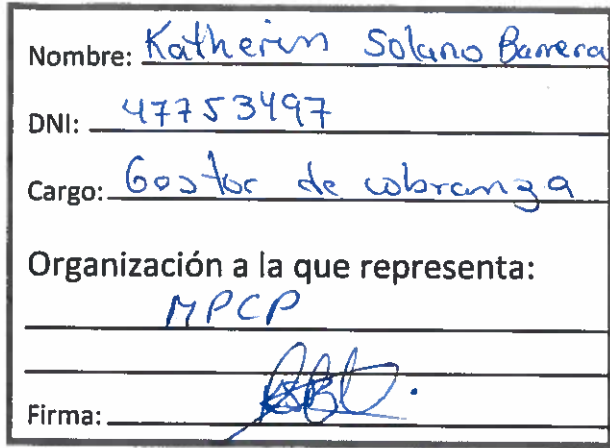 Nombre: Katherin Solano Barrera
DNI: 47753497
Cargo: Gestor de cobranza
Organización a la que representa:
MPCP
Firma: